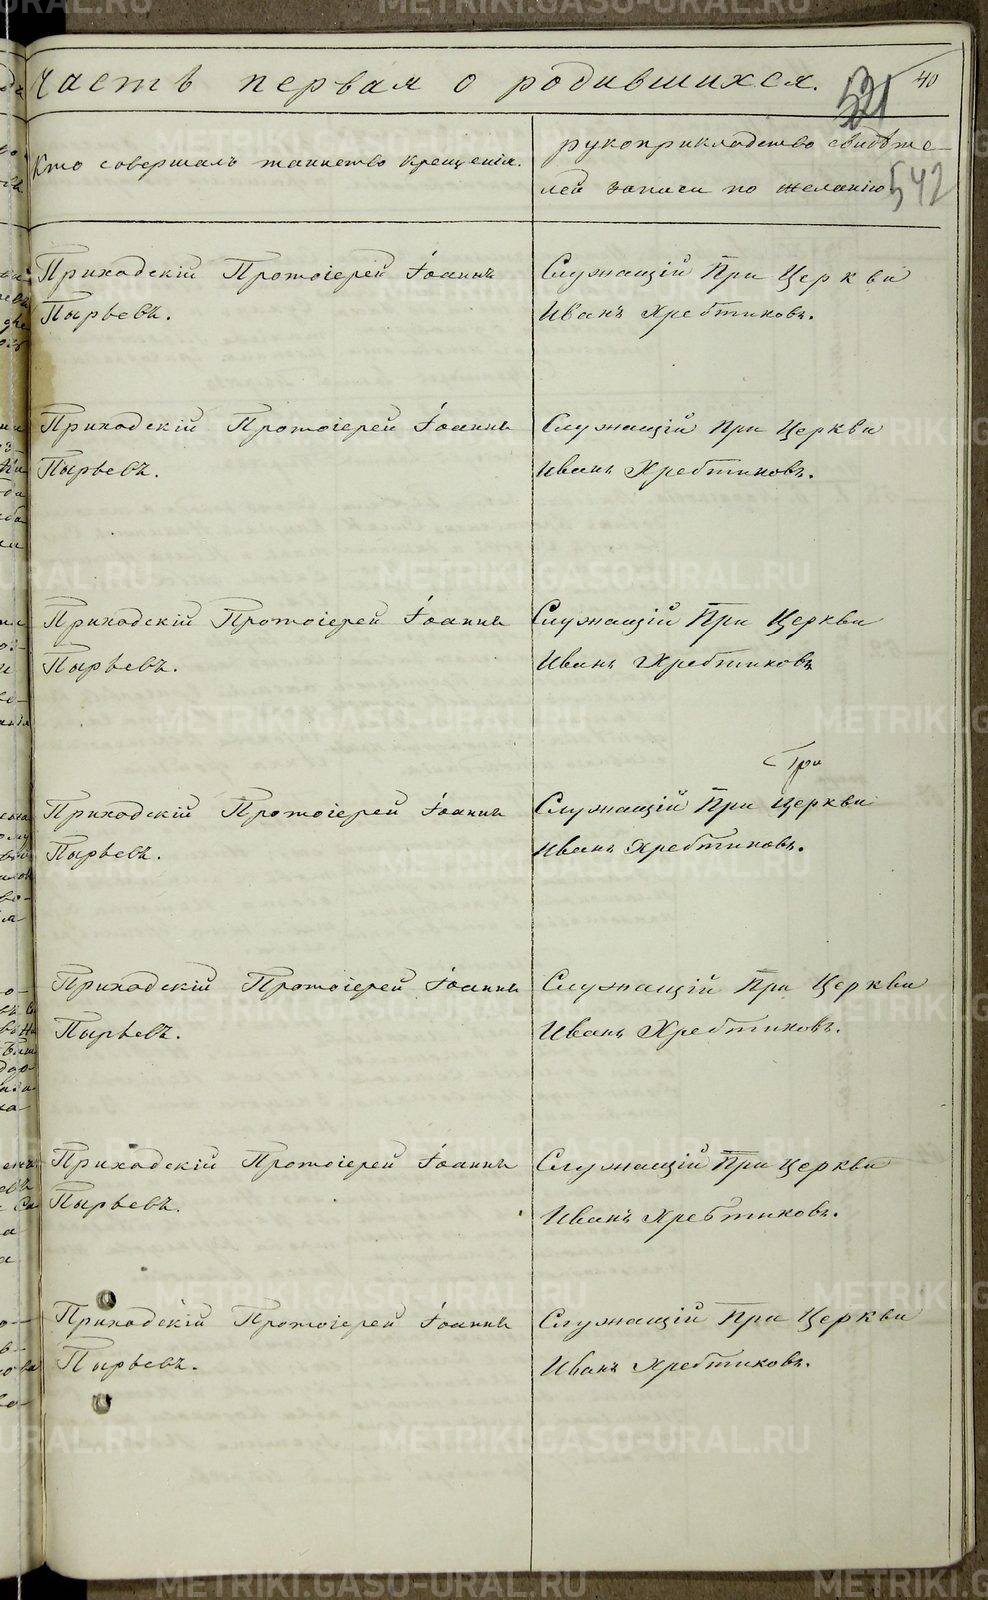 часть первая о родившихся.
40
521
542
Кто совершалъ таинство крещенія.
рукоприкладство свидѣте-
лей записи по желанію
Приходскій Протоіерей Іоаннъ
Пырьевъ.
Служащій При Церкви
Иванъ Хребтиковъ.
Приходскій Протоіерей Іоаннъ
Пырьевъ.
Служащій При Церкви
Иванъ Хребтиковъ.
Приходскій Протоіерей Іоаннъ
Пырьевъ.
Служащій При Церкви
Иванъ Хребтиковъ
Приходскій Протоіерей Іоаннъ
Пырьевъ.
При
Служащій При Церкви
Иванъ Хребтиковъ.
Приходскій Протоіерей Іоаннъ
Пырьевъ.
Служащій При Церкви
Иванъ Хребтиковъ.
Приходскій Протоіерей Іоаннъ
Пырьевъ.
Служащій При Церкви
Иванъ Хребтиковъ.
Приходскій Протоіерей Іоаннъ
Пырьевъ.
Служащій При Церкви
Иванъ Хребтиковъ.
METRIKI.GASO-URAL.RU